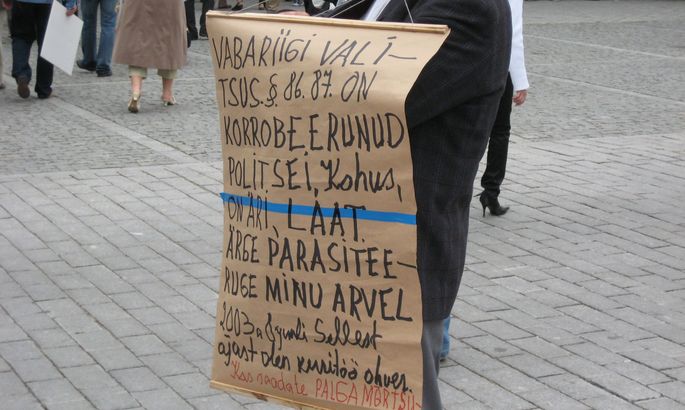 VABARIIGI VALI-
TSUS.§. 86. 87. ON
KORROBEERUNUD
POLITSEI, Kohus,
ON ÄRI, LAAT.
ÄRGE PARASITEE-
RUGE MINU ARVEL
2003 a Sellest
ajast olen kuritöö ohver.
Kas saadate PALGAMÕRTSU